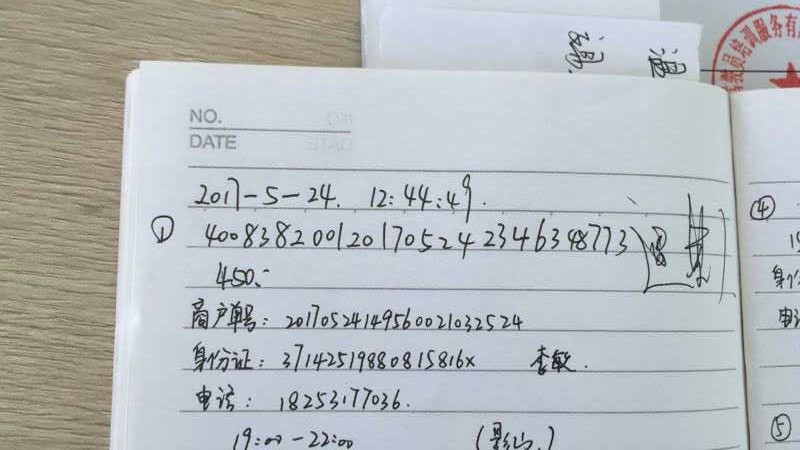 通
NO.
DATE
2017-5-24. 12:44:49.
① 4008382001201705242346348773
450.-
商户单号: 20170524149560021032524
身份证: 37142519880815816X 李敏.
电话: 18253177036.
19:00-22:00 (影山.)
④
身份
电话
⑤
教员培训服务有